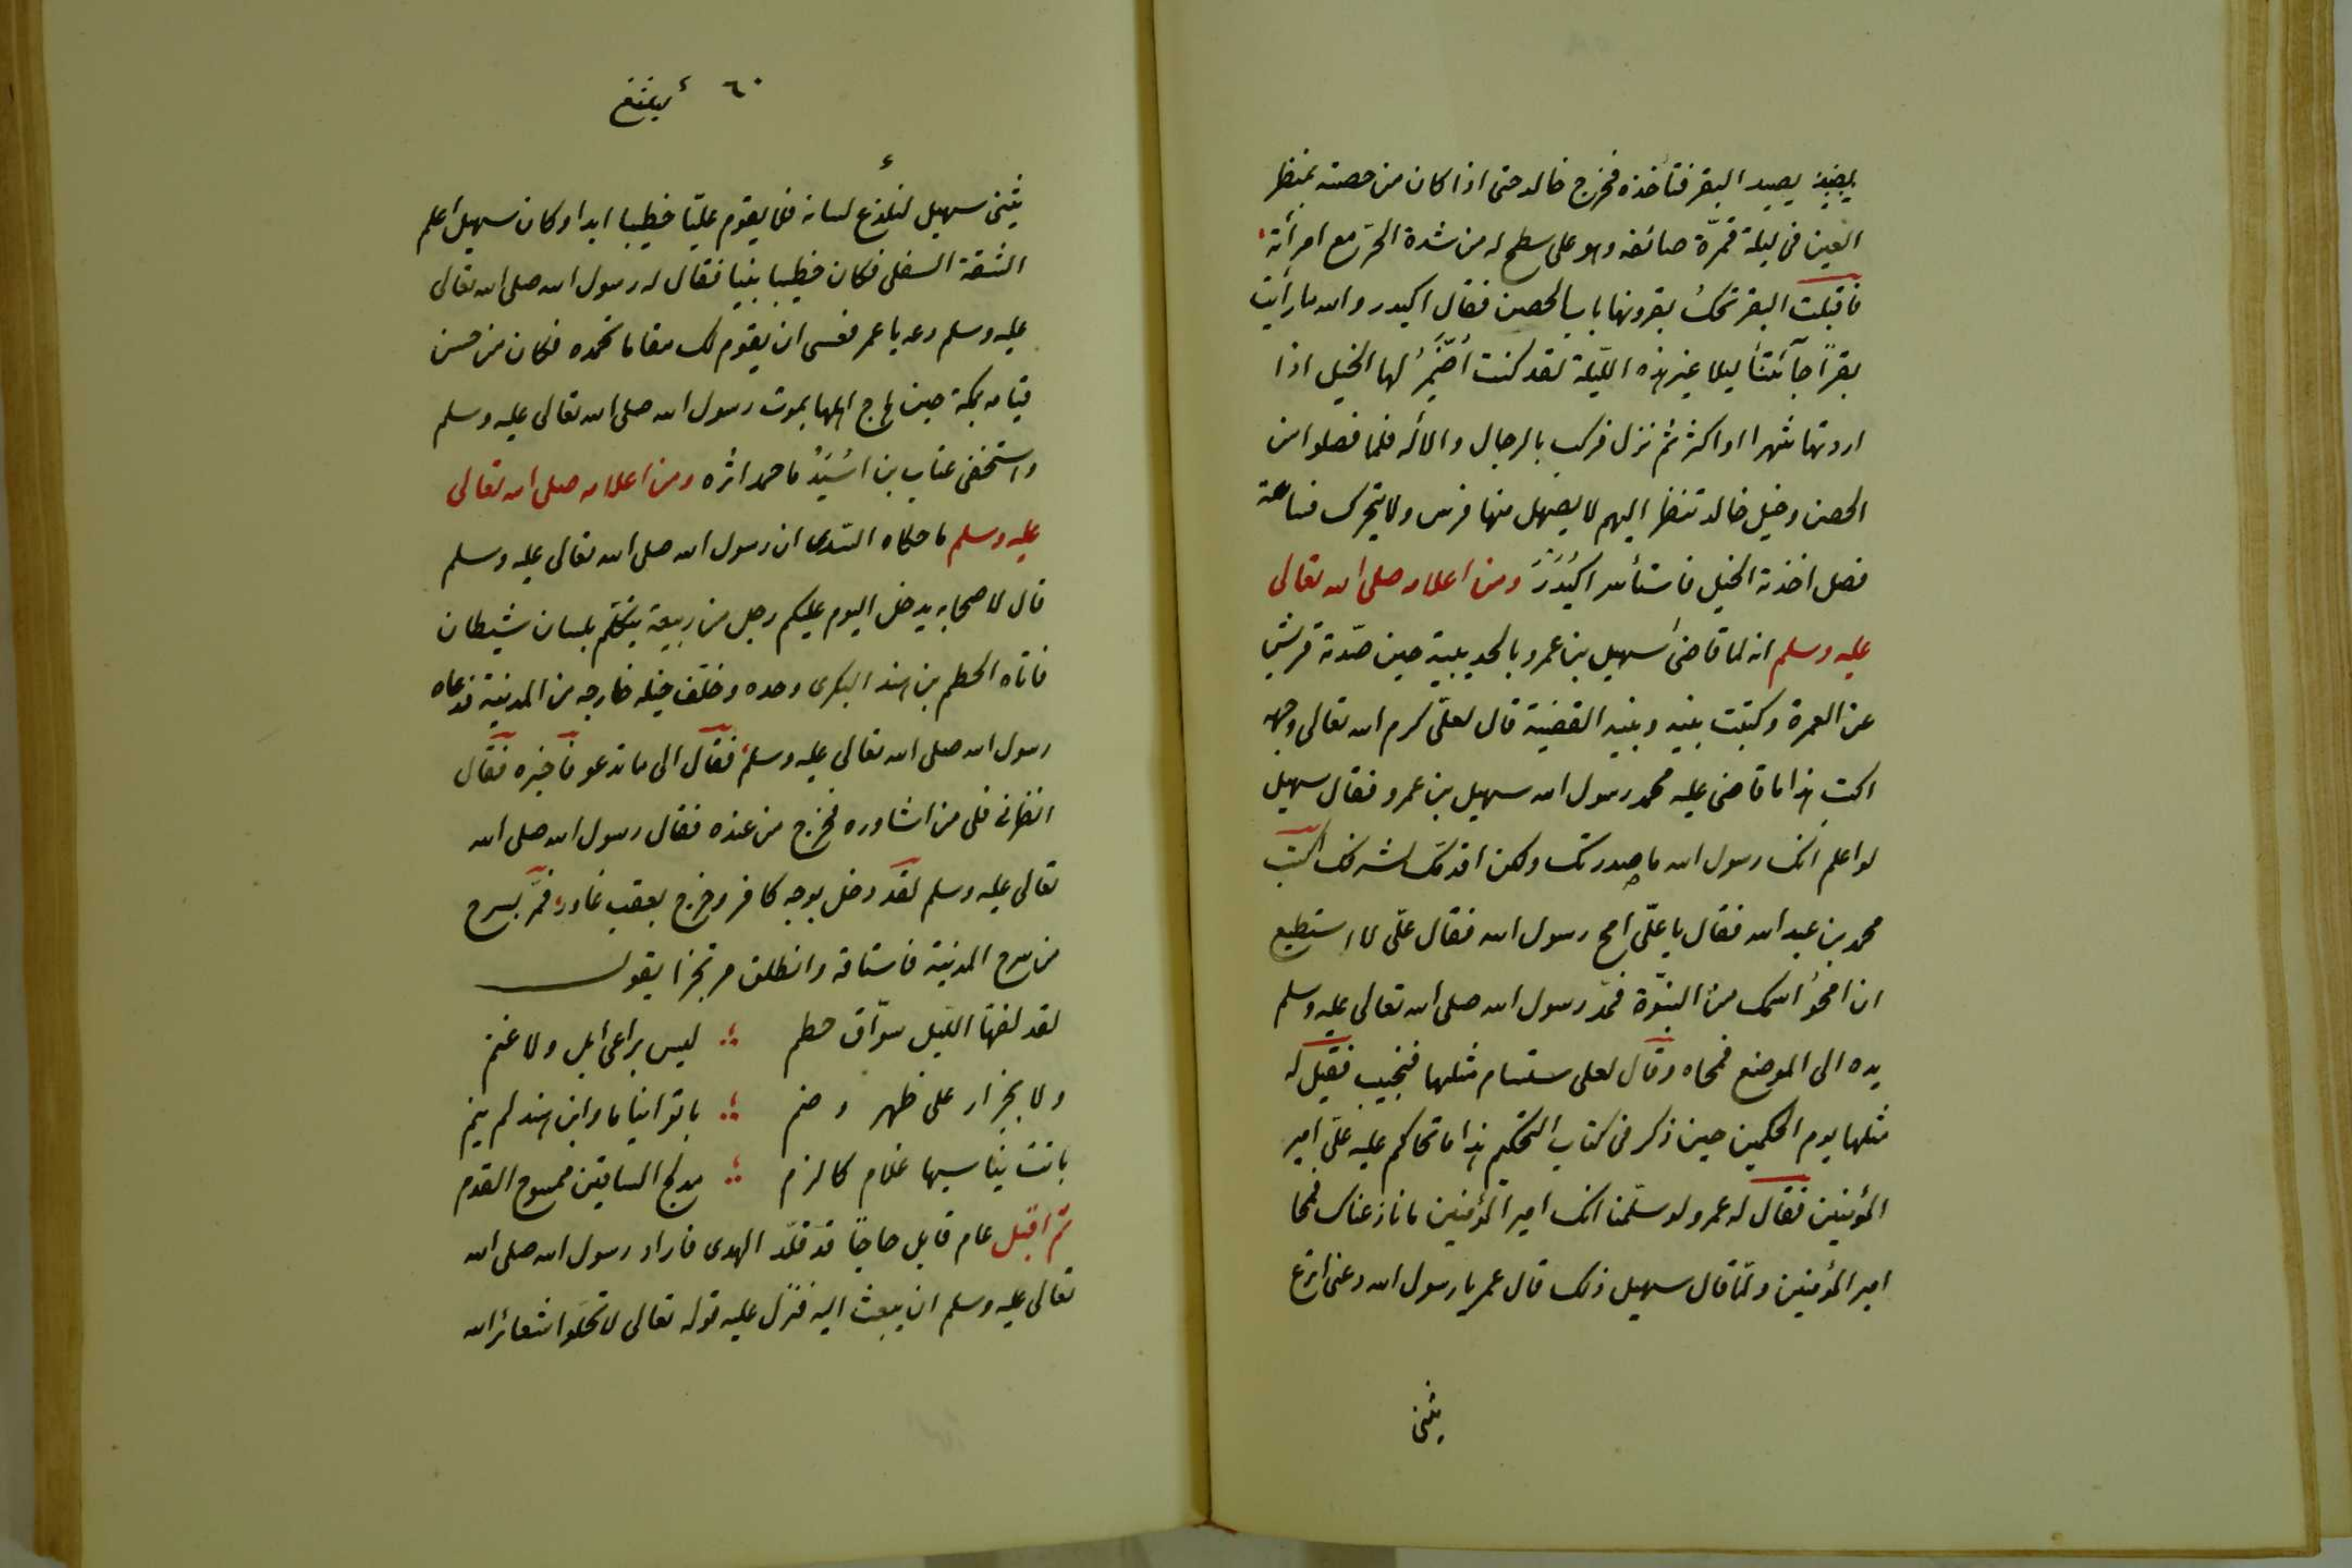 يصيد البقر فتأخذه فخرج خالد حتى اذا كان من حصنه بمنظر
العين فى ليلة قمرّة صائفه وهو على سطح له من شدة الحرّ مع امرأته
فاقبلت البقر تحكّ بقرونها باب الحصن فقال اكيدر والله ما رأيت
بقراً جآئتنا ليلا غير هذه اللّيلة لقد كنت اُضَمِّرُ لها الخيل اذا
اردتها شهرا او اكثر ثم نزل فركب بالرجال والاله فلما فصلوا من
الحصن وخيل خالد تنظر اليهم لا يصهل منها فرس ولا يتحرك فساعة
فصل اخذته الخيل فاستأسر اكيدر ومن اعلامه صلى الله تعالى
عليه وسلم انه لما قاضى سهيل بن عمرو بالحديبية حين صدّته قريش
عن العمرة وكتبت بينه وبينه القضية قال لعلىّ كرم الله تعالى وجهه
اكتب هذا ما قاضى عليه محمد رسول الله سهيل بن عمرو فقال سهيل
لو اعلم انك رسول الله ما صددتك ولكن اقدمك لشرفك اكتب
محمد بن عبد الله فقال يا علىّ امح رسول الله فقال علىّ لا استطيع
ان امحو اسمك من النبوّة فمدّ رسول الله صلى الله تعالى عليه وسلم
يده الى الموضع فمحاه وقال لعلى ستسام مثلها فتجيب فقيل له
مثلها يوم الحكمين حين ذكر فى كتاب التحكيم هذا ما تحاكم عليه علىّ امير
المؤمنين فقال له عمرو لو سلّمنا انك امير المؤمنين ما نازعناك فمحا
امير المؤمنين ولمّا قال سهيل ذلك قال عمر يا رسول الله دعنى انزع
يثنى
٦٠
يثنى سهيل لنلذع لسانه فلما يقوم عليّا خطيبا ابدا وكان سهيل اعلم
الشقة السفلى فكان خطيبا بينا فقال له رسول الله صلى الله تعالى
عليه وسلم دعه يا عمر فعسى ان يقوم لك مقاما تحمده فكان من حسن
قيامه بمكة حين هاج اهلها بموت رسول الله صلى الله تعالى عليه وسلم
واستخفى عتاب بن اُسَيْد ما حمد اثره ومن اعلامه صلى الله تعالى
عليه وسلم ما حكاه السّدى ان رسول الله صلى الله تعالى عليه وسلم
قال لاصحابه يدخل اليوم عليكم رجل من ربيعة يتكلم بلسان شيطان
فاتاه الحطم بن هند البكرى وحده وخلف خيله خارجه من المدينة فدعاه
رسول الله صلى الله تعالى عليه وسلم فقال الى ما تدعو فاخبره فقال
انظرنى فلى من اشاوره فخرج من عنده فقال رسول الله صلى الله
تعالى عليه وسلم لقد دخل بوجه كافر وخرج بعقب غادر فمرّ بسرح
من سرح المدينة فاستاقه وانطلق مرتجزا يقول
لقد لفها اللّيل سوّاق حطم ؛ ليس براعى ابل ولا غنم
ولا بجزار على ظهر وضم ؛ باتوا نياما وابن هند لم ينم
باتت يقاسيها غلام كالزم ؛ مدلج الساقين ممسوح القدم
ثم اقبل عام قابل حاجّا قد قلّد الهدى فاراد رسول الله صلى الله
تعالى عليه وسلم ان يبعث اليه فنزل عليه قوله تعالى لا تحلّوا شعائر الله